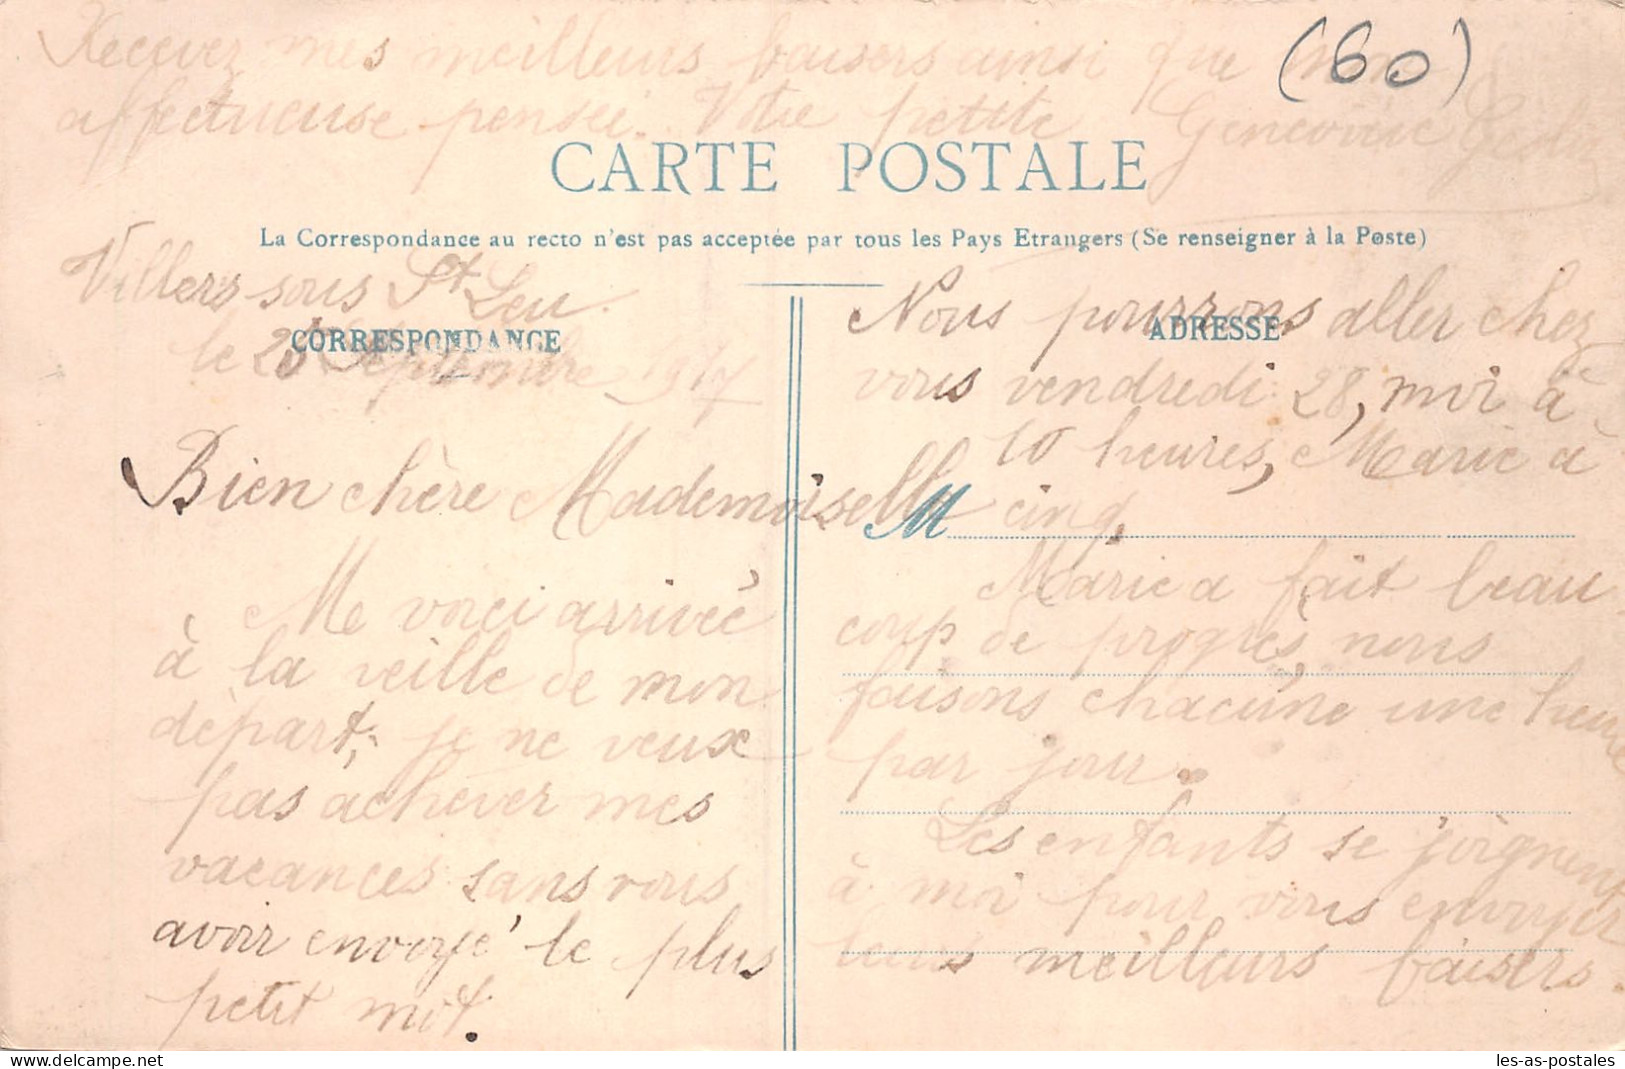 Recevez mes meilleurs baisers ainsi que mon
(60)
affectueuse pensei. Votre petite Genevieve
CARTE POSTALE
La Correspondance au recto n'est pas acceptée par tous les Pays Etrangers (Se renseigner à la Poste)
Villers sous St Leu.
CORRESPONDANCE
le Septembre 1917
Bien chère Mademoiselle
Me voici arrivée
à la veille de mon
départ, je ne veux
pas achever mes
vacances sans vous
avoir envoyé le plus
petit mot.
ADRESSE
Nous pourrons aller chez
vous vendredi 28, moi à
10 heures, Marie à
M cinq.
Marie a fait beau
coup de progrès, nous
faisons chacune une heure
par jour.
Les enfants se joignent
à moi pour vous envoyer
leurs meilleurs baisers.
delcampe.net
les-as-postales